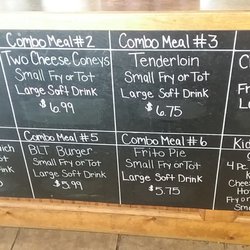 Combo Meal #2
Two Cheese Coneys
Small Fry or Tot
Large Soft Drink
$6.99
Combo Meal #3
Tenderloin
Small Fry or Tot
Large Soft Drink
$6.75
C
Fr
Lar
Combo Meal #5
BLT Burger
Small Fry or Tot
Large Soft Drink
$5.99
Combo Meal #6
Frito Pie
Small Fry or Tot
Large Soft Drink
$5.75
Kid
4 Pc.
Chees
Hot
Fry or
Sma